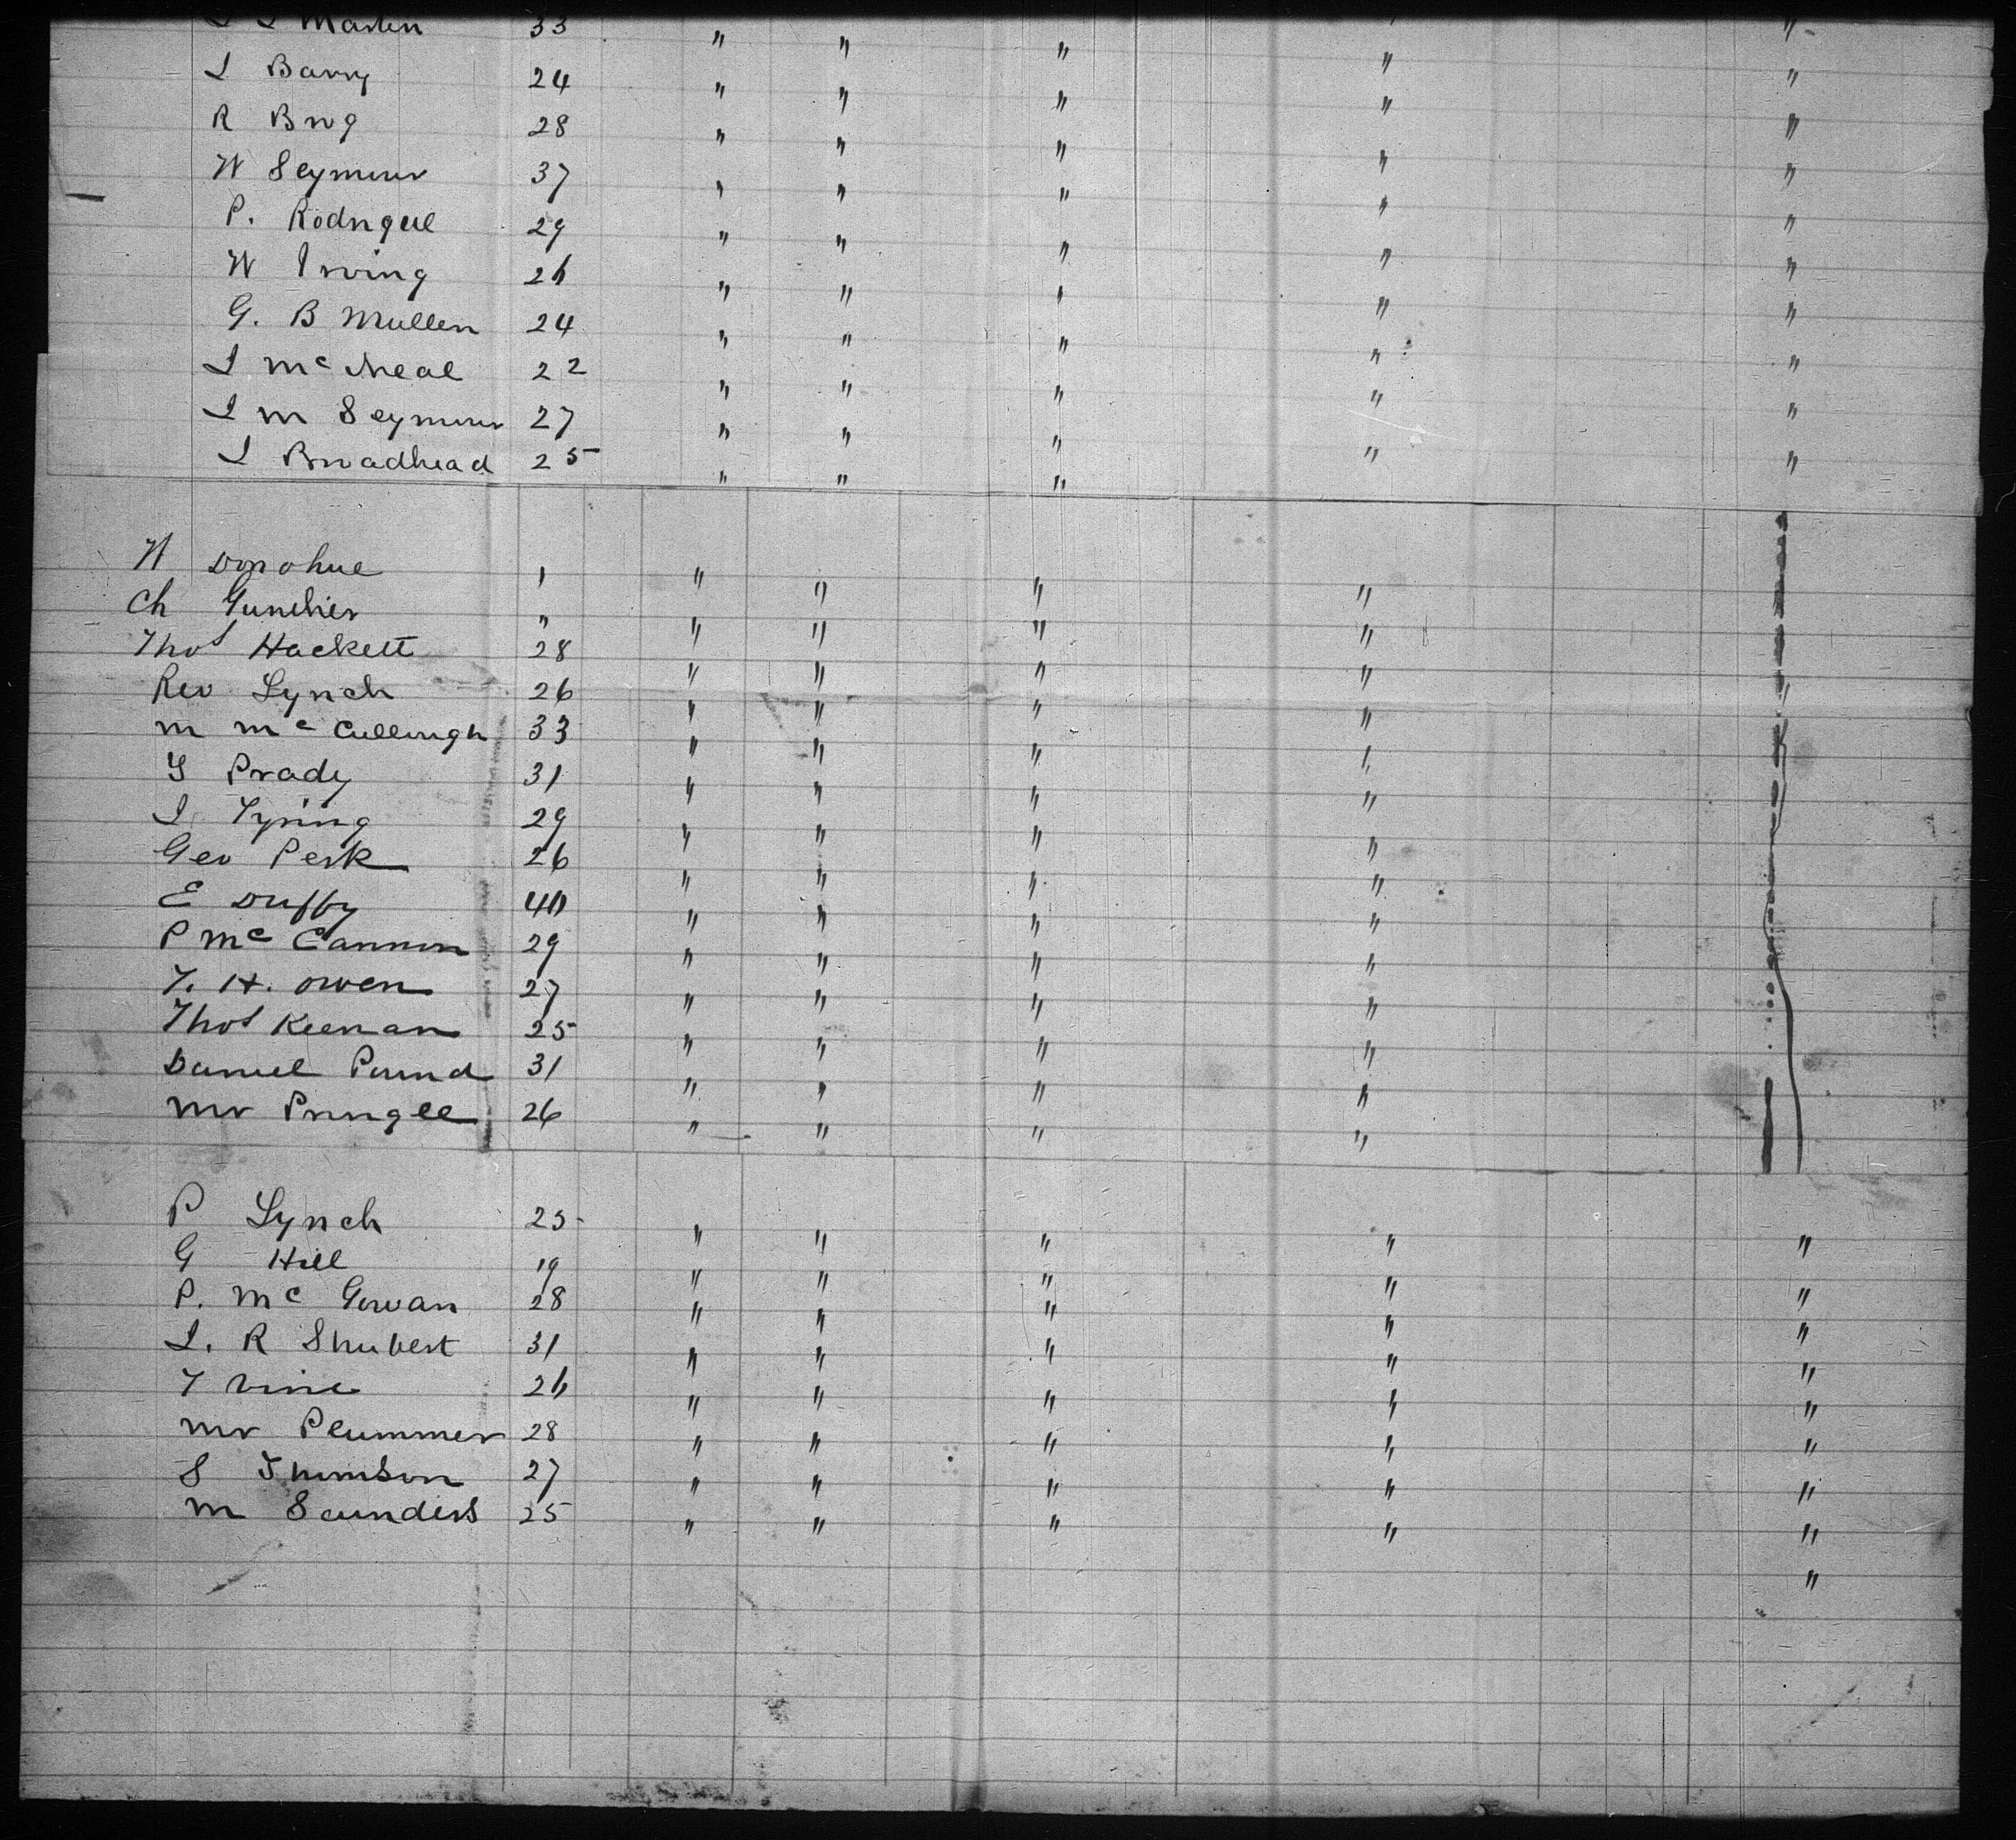 Martin 33 " " " " "
I Barry 24 " " " " "
R 28 " " " " "
W Seymour 37 " " " " "
P. Rodrigue 29 " " " " "
W Irving 26 " " " " "
G. B Mullen 24 " " " " "
I McNeal 22 " " " " "
I M Seymour 27 " " " " "
I Broadhead 25 " " " " "
W Donohue 1 " " " "
Ch " " " " "
Thos Hackett 28 " " " "
Rev Lynch 26 " " " "
M McCullough 33 " " " "
Prady 31 " " " "
I Tyring 29 " " " "
Geo Perk 26 " " " "
E Duffy 40 " " " "
P McCannon 29 " " " "
T. H. Owen 27 " " " "
Thos Keenan 25 " " " "
Daniel Pound 31 " " " "
Mr Pringle 26 " " " "
P Lynch 25 " " " " "
G Hill 19 " " " " "
P. McGowan 28 " " " " "
I. R Shubert 31 " " " " "
T Vine 26 " " " " "
Mr Plummer 28 " " " " "
S Thomson 27 " " " " "
M Saunders 25 " " " " "
"